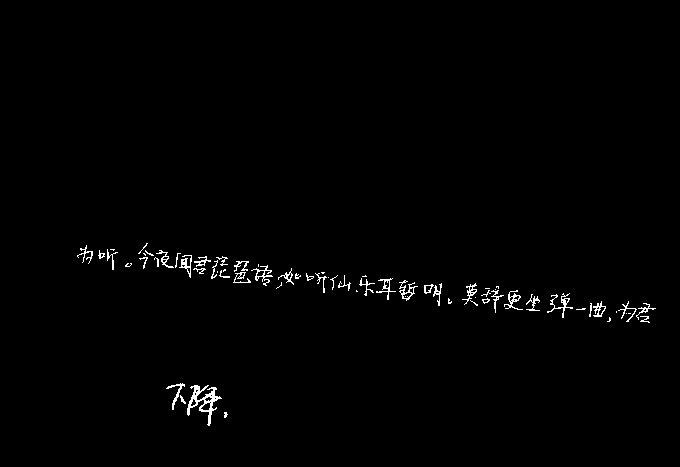 为听。今夜闻君琵琶语,如听仙乐耳暂明。莫辞更坐弹一曲,为君
下降,